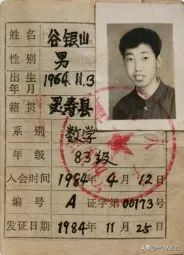 姓名 谷银山
性别 男
出生年月 1964.11.3
籍贯 灵寿县
系别 数学
年级 83级
入会时间 1984年4月12日
编号 A 证字第00173号
发证日期 1984年11月25日